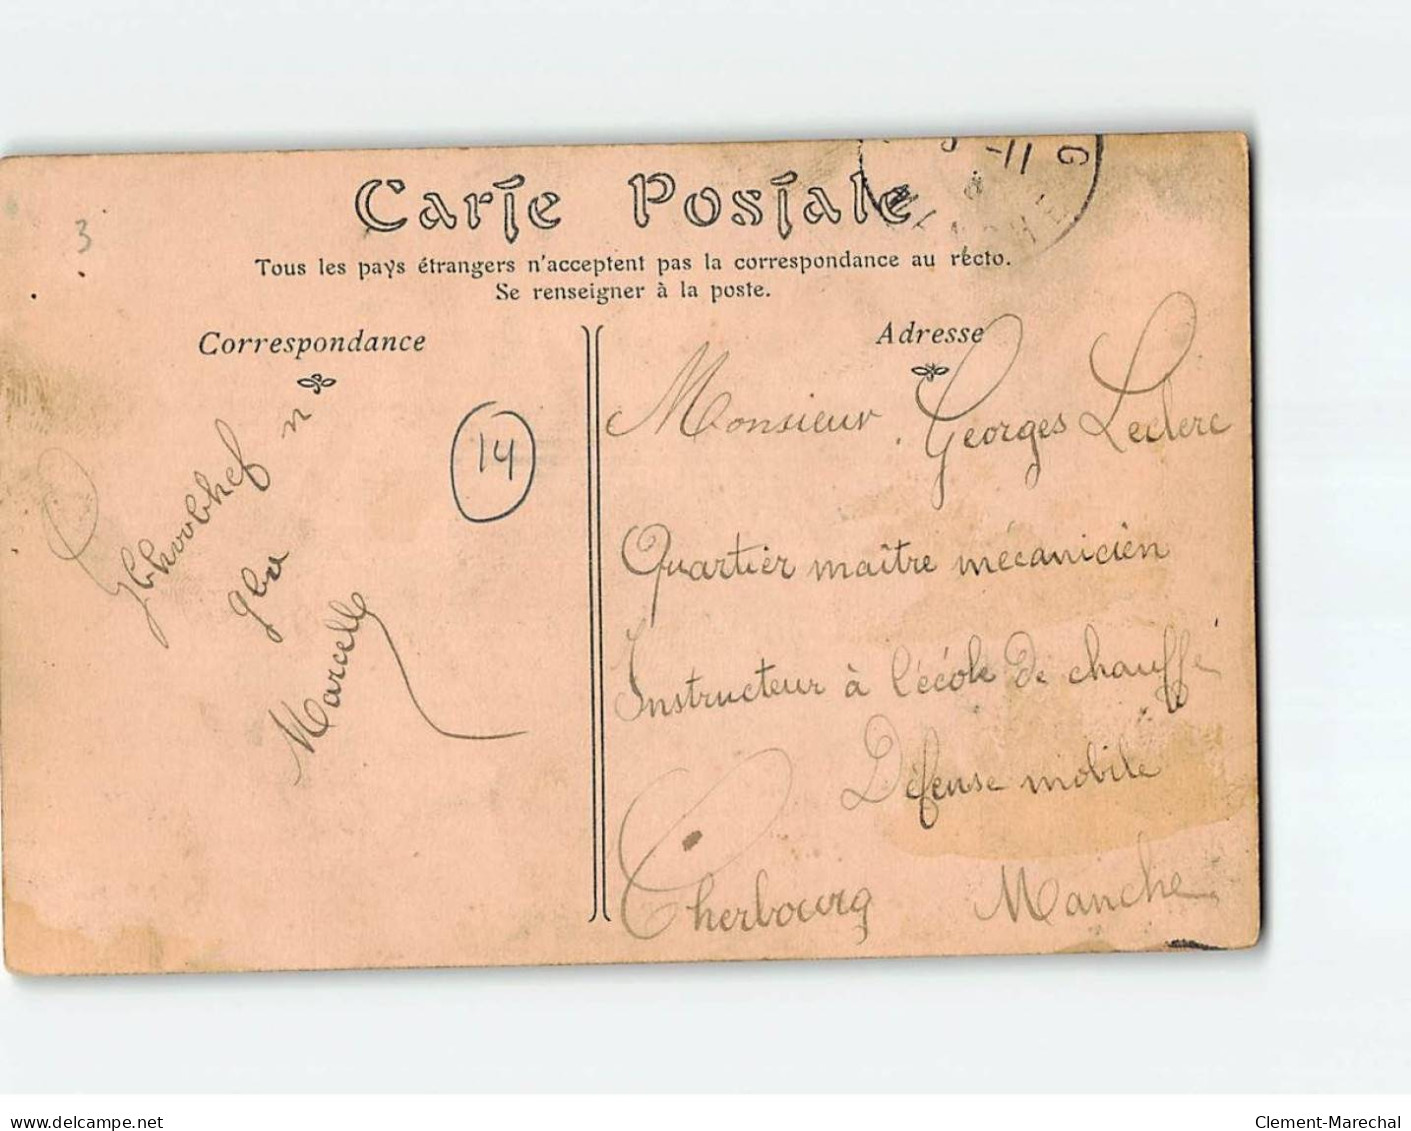 3
Carte Postale
Tous les pays étrangers n'acceptent pas la correspondance au recto.
Se renseigner à la poste.
Correspondance
Adresse
14
n
Marcelle
Monsieur Georges Leclerc
Quartier maître mécanicien
Instructeur à l'école de chauffe
Défense mobile
Cherbourg Manche
-11
delcampe.net
Clement-Marechal